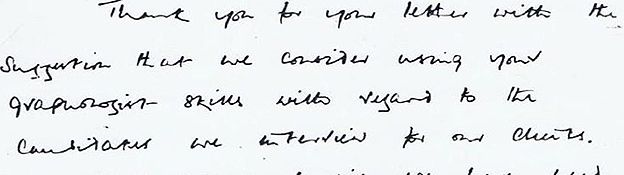 Thank you for your letter with the
suggestion that we consider using your
graphologist skills with regard to the
candidates we interview for our clients.